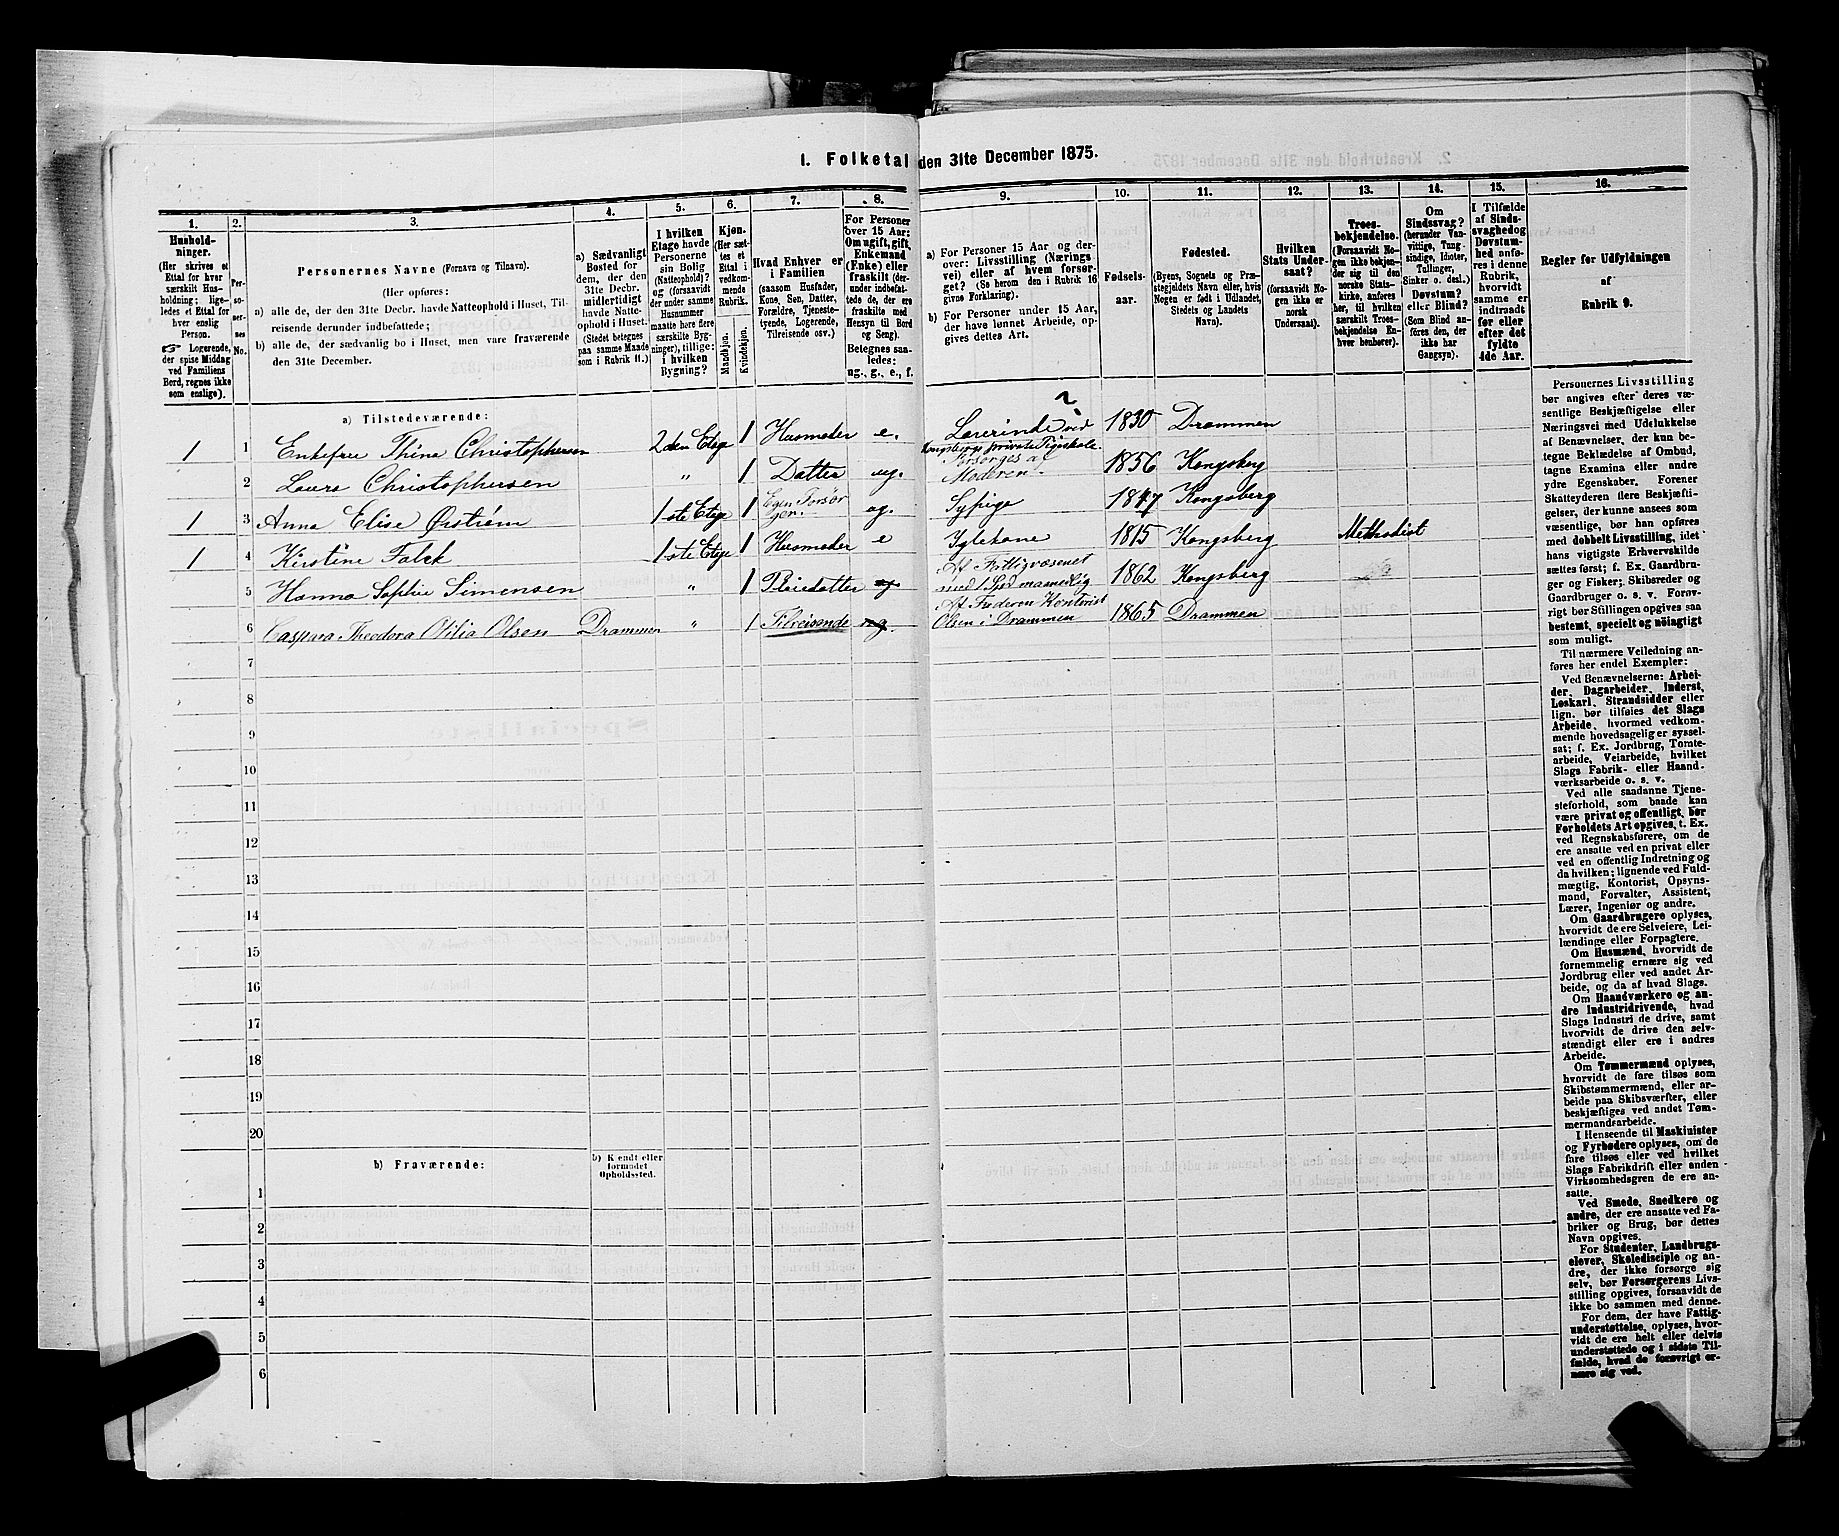 1. Folketal den 31te December 1875.
1. 2. 3. 4. 5. 6. 7. 8. 9. 10. 11. 12. 13. 14. 15. 16.
Hushold-
ninger.
(Her skrives et
Ettal for hver
særskilt Hus-
holdning; lige-
ledes et Ettal for
hver enslig
Person.
☞ Logerende,
der spise Middag
ved Familiens
Bord, regnes ikke
som enslige).
Per-
so-
ner-
nes
No.
Personernes Navne (Fornavn og Tilnavn).
(Her opføres:
a) alle de, der den 31te Decbr. havde Natteophold i Huset, Til-
reisende derunder indbefattede;
b) alle de, der sædvanlig bo i Huset, men vare fraværende
den 31te December.
a) Sædvanligt
Bosted for
dem, der den
31te Decbr.
midlertidigt
havde Natte-
ophold i Huset.
(Stedet betegnes
paa samme Maade
som i Rubrik 11.)
I hvilken
Etage havde
Personerne
sin Bolig
(Natteophold)?
og (forsaavidt
der under samme
Husnummer
maatte høre flere
særskilte Byg-
ninger), tillige:
i hvilken
Bygning?
Kjøn.
(Her sæt-
tes et
Ettal i
vedkom-
mende
Rubrik.
Mandkjøn.
Kvindekjøn.
Hvad Enhver er
i Familien
(saasom Husfader,
Kone, Søn, Datter,
Forældre, Tjeneste-
tyende, Logerende,
Tilreisende osv.)
For Personer
over 15 Aar:
Om ugift, gift,
Enkemand
(Enke) eller
fraskilt (der-
under indbefat-
tede de, der ere
fraskilte med
Hensyn til Bord
og Seng).
Betegnes saa-
ledes:
ug., g., e., f.
a) For Personer 15 Aar og der-
over: Livsstilling (Nærings
vei) eller af hvem forsør-
get? (Se herom den i Rubrik 16
givne Forklaring).
b) For Personer under 15 Aar,
der have lønnet Arbeide, op-
gives dettes Art.
Fødsels-
aar.
Fødested.
(Byens, Sognets og Præ-
stegjeldets Navn eller, hvis
Nogen er født i Udlandet,
Stedets og Landets
Navn).
Hvilken
Stats Under-
saat?
(forsaavidt No-
gen ikke er
norsk
Undersaat).
Troes-
bekjendelse.
(Forsaavidt No-
gen ikke bekjen-
der sig til den
norske Stats-
kirke, anføres
her, til hvilken
særskilt Troes-
bekjendelse En-
hver henhører).
Om
Sindssvag?
(herunder Van-
vittige, Tung-
sindige, Idioter,
Tullinger,
Sinker o. desl.).
Døvstum?
eller Blind?
(Som Blind an-
føres den, der
ikke har
Gangsyn).
I Tilfælde
af Sinds-
svaghed og
Døvstum-
hed anfø-
res i denne
Rubrik,
hvorvidt
samme er
indtraadt
før eller
efter det
fyldte
4de Aar.
Regler for Udfyldningen
af
Rubrik 9.
a) Tilstedeværende:
1 1 Enkefru Thina Christophersen 2den Etage 1 Husmoder e. Lærerinde ved
Kongsbergs private Pigeskole 1830 Drammen
2 Laura Christophersen " 1 Datter ug. Forsørges af
Moderen 1856 Kongsberg
1 3 Anna Elise Ørstrøm 1ste Etage 1 Egen Forsør
ger ug. Sypige 1847 Kongsberg
1 4 Kirstine Falck 1ste Etage 1 Husmoder e Iglekone 1815 Kongsberg Methodist
5 Hanna Sophie Simensen " 1 Pleiedatter ug Af Fattigvæsenet
med 1 Spd maanedlig 1862 Kongsberg
6 Caspara Theodora Otilia Olsen Drammen " 1 Tilreisende ug. Af Faderen Kontorist
Olsen i Drammen 1865 Drammen
7
8
9
10
11
12
13
14
15
16
17
18
19
20
b) Fraværende:
b) Kendt eller
formodet
Opholdssted.
1
2
3
4
5
6
Personernes Livsstilling
bør angives efter deres væ-
sentlige Beskjæftigelse eller
Næringsvei med Udelukkelse
af Benævnelser, der kun be-
tegne Beklædelse af Ombud,
tagne Examina eller andre
ydre Egenskaber. Forener
Skatteyderen flere Beskjæfti-
gelser, der kunne ansees som
væsentlige, bør han opføres
med dobbelt Livsstilling, idet
hans vigtigste Erhvervskilde
sættes først; f. Ex. Gaardbru-
ger og Fisker; Skibsreder og
Gaardbruger o. s. v. Forøv-
rigt bør Stillingen opgives saa
bestemt, specielt og nöiagtigt
som muligt.
Til nærmere Veiledning an-
føres her endel Exempler:
Ved Benævnelserne: Arbei-
der, Dagarbeider, Inderst,
Løskarl, Strandsidder eller
lign. bør tilføies det Slags
Arbeide, hvormed vedkom-
mende hovedsagelig er syssel-
sat; f. Ex. Jordbrug, Tomte-
arbeide, Veiarbeide, hvilket
Slags Fabrik- eller Haand-
værksarbeide o. s. v.
Ved alle saadanne Tjene-
steforhold, som baade kan
være privat og offentligt, bør
Forholdets Art opgives, t. Ex.
ved Regnskabsførere, om de
ere ansatte ved en privat eller
ved en offentlig Indretning og
da hvilken; lignende ved Fuld-
mægtig, Kontorist, Opsyns-
mand, Forvalter, Assistent,
Lærer, Ingeniør og andre.
Om Gaardbrugere oplyses,
hvorvidt de ere Selveiere, Lei-
lændinge eller Forpagtere.
Om Husmænd, hvorvidt de
fornemmelig ernære sig ved
Jordbrug eller ved andet Ar-
beide, og da af hvad Slags.
Om Haandværkere og an-
dre Industridrivende, hvad
Slags Industri de drive, samt
hvorvidt de drive den selv-
stændigt eller ere i andres
Arbeide.
Om Tømmermænd oplyses,
hvorvidt de fare tilsøs som
Skibstømmermænd, eller ar-
beide paa Skibsværfter, eller
beskjæftiges ved andet Tøm-
mermandsarbeide.
I Henseende til Maskinister
og Fyrbødere oplyses, om de
fare tilsøs eller ved hvilket
Slags Fabrikdrift eller anden
Virksomhedsgren de ere an-
satte.
Ved Smede, Snedkere og
andre, der ere ansatte ved Fa-
briker og Brug, bør dettes
Navn opgives.
For Studenter, Landbrugs-
elever, Skoledisciple og an-
dre, der ikke forsørge sig
selv, bør Forsørgerens Livs-
stilling opgives, forsaavidt de
ikke bo sammen med denne.
For dem, der have Fattig-
understøttelse, oplyses, hvor-
vidt de ere helt eller delvis
understøttede og i sidste Til-
fælde, hvad de forøvrigt er-
nære sig ved.